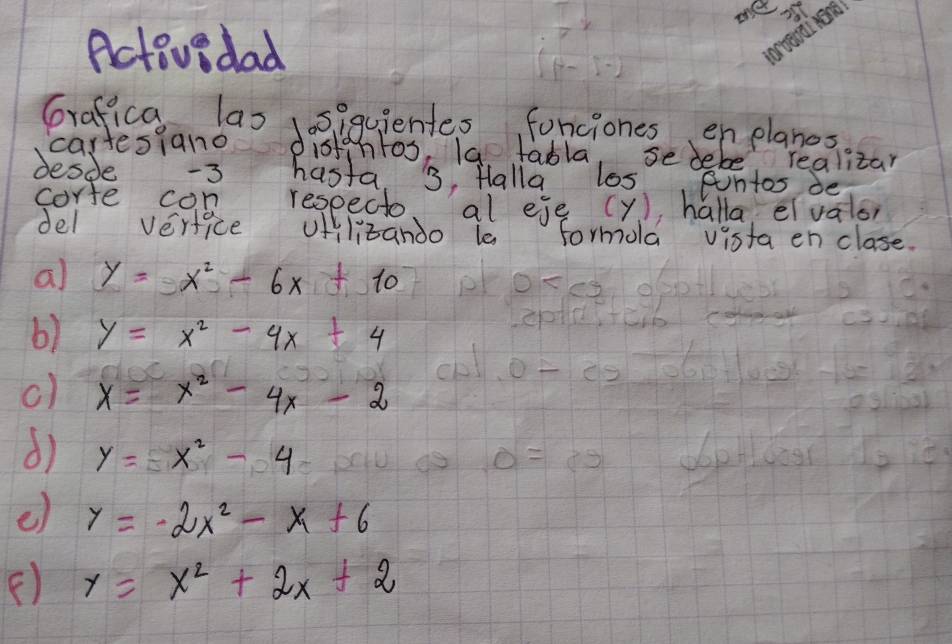 Actividad
Grafica las siguientes funciones en planos
cartesiano distintos, la tabla se debe realizar
desde -3 hasta 3, Halla los puntos de
corte con respecto al eje (y), halla el valor
del vértice utilizando la formula vista en clase.
a) y = x² - 6x + 10
b) y = x² - 4x + 4
c) x = x² - 4x - 2
d) y = x² - 4
e) y = -2x² - x + 6
f) y = x² + 2x + 2